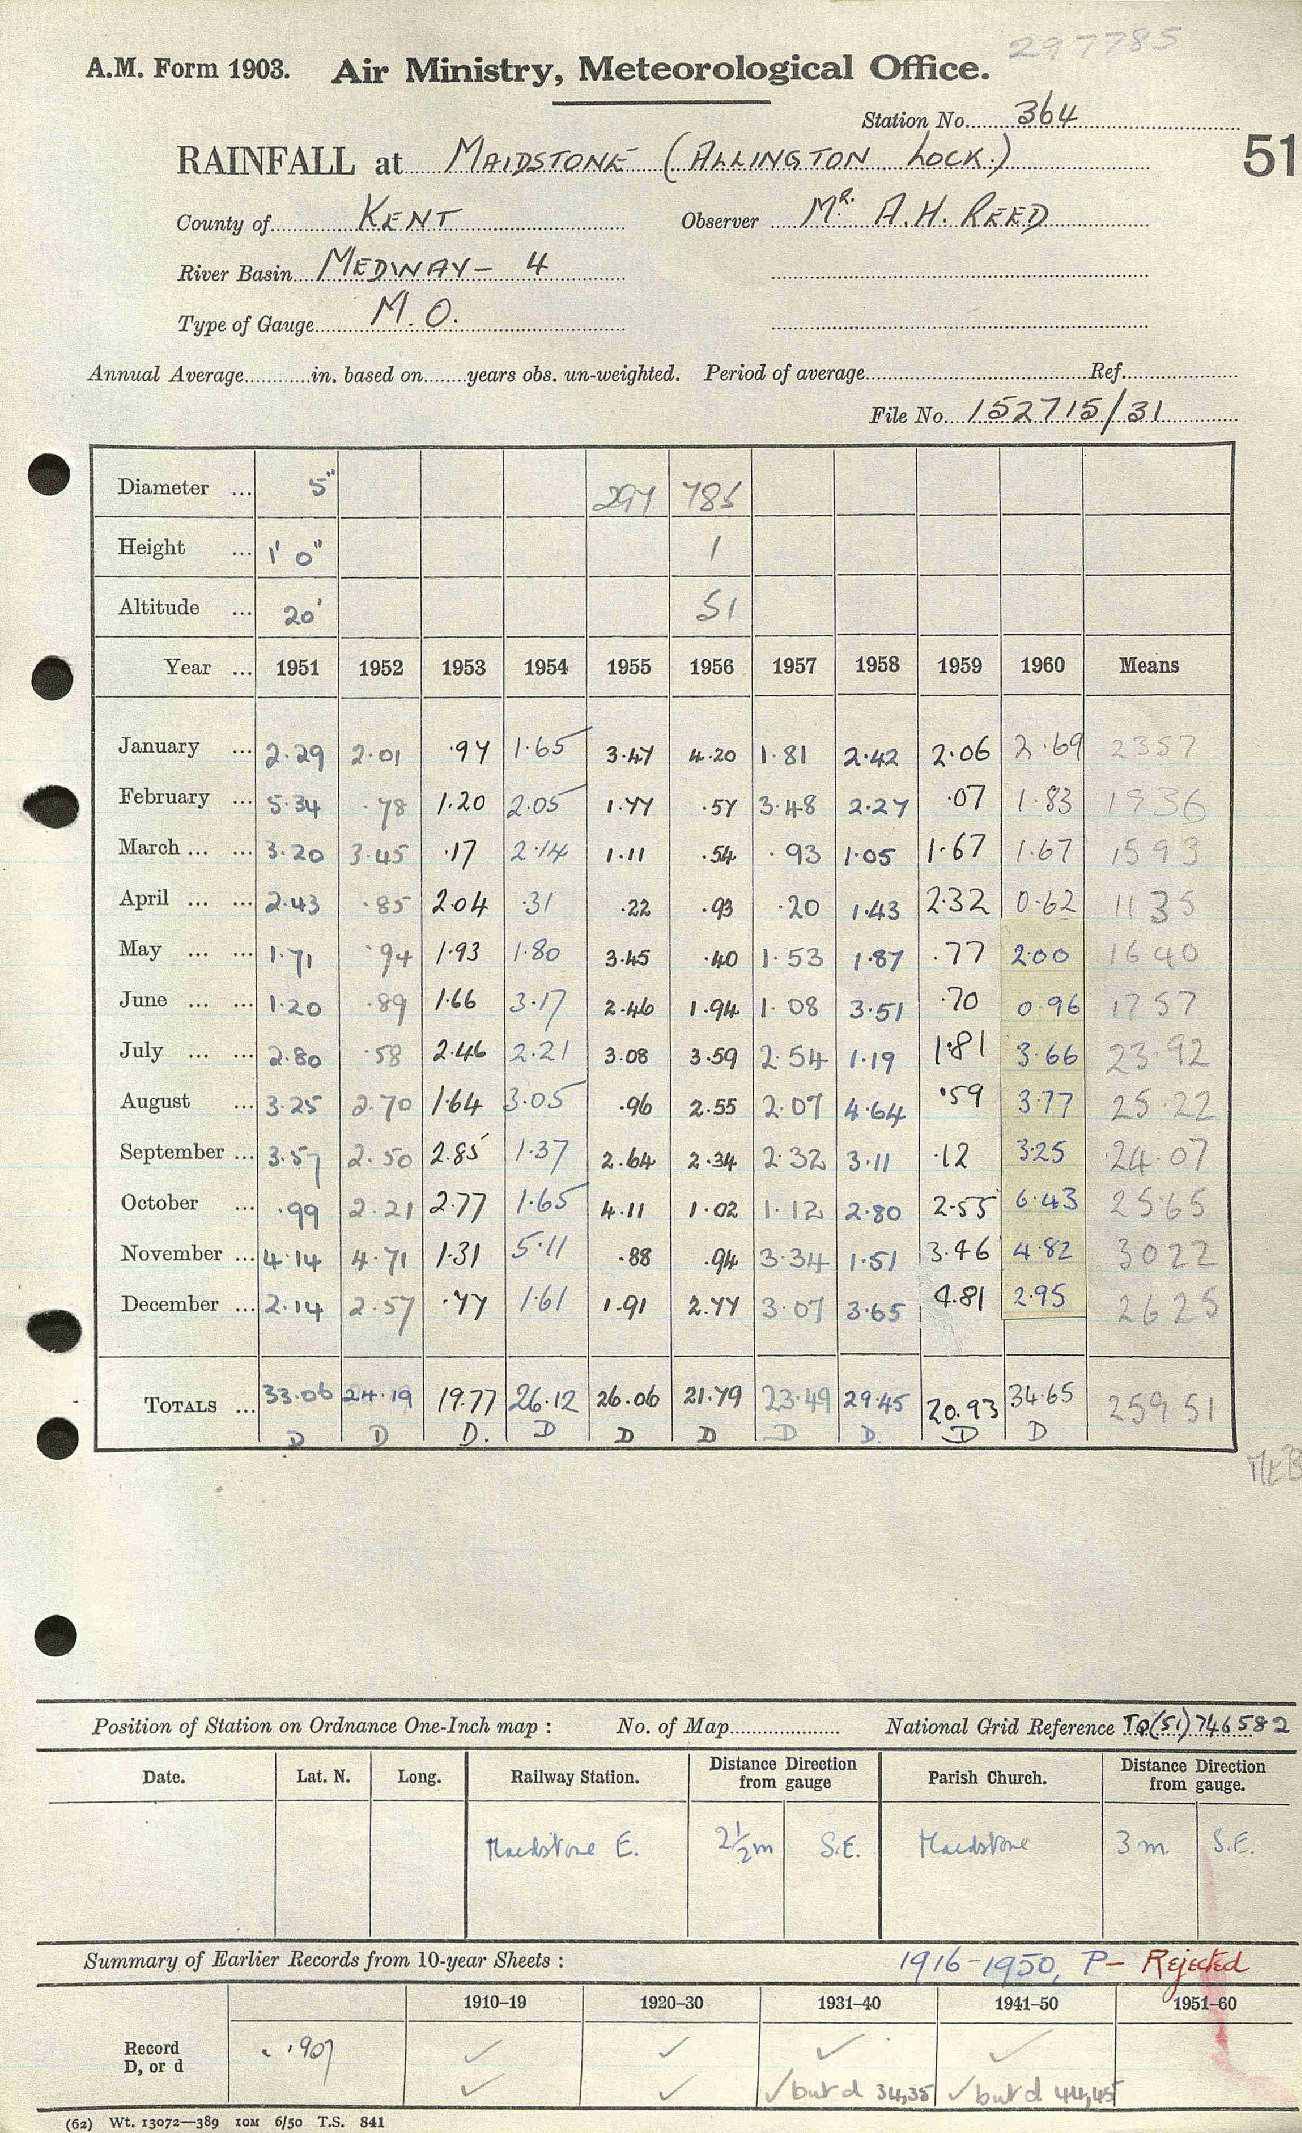 297785
A.M. Form 1903. Air Ministry, Meteorological Office.
Station No. 364
RAINFALL at MAIDSTONE (ALLINGTON LOCK.) 51
County of KENT Observer MR. A.H. REED
River Basin MEDWAY - 4
Type of Gauge M.O.
Annual Average............in. based on........years obs. un-weighted. Period of average............Ref............
File No. 152715/31
Diameter ... 5" 297 785
Height ... 1' 0" 1
Altitude ... 20' 51
Year ... 1951 1952 1953 1954 1955 1956 1957 1958 1959 1960 Means
January ... 2.29 2.01 .97 1.65 3.47 4.20 1.81 2.42 2.06 2.69 2357
February ... 5.34 .78 1.20 2.05 1.77 .57 3.48 2.27 .07 1.83 1936
March ... ... 3.20 3.45 .17 2.14 1.11 .54 .93 1.05 1.67 1.67 1593
April ... ... 2.43 .85 2.04 .31 .22 .93 .20 1.43 2.32 0.62 1135
May ... ... 1.71 .94 1.93 1.80 3.45 .40 1.53 1.87 .77 2.00 1640
June ... ... 1.20 .89 1.66 3.17 2.46 1.94 1.08 3.51 .70 0.96 1757
July ... ... 2.80 .58 2.46 2.21 3.08 3.59 2.54 1.19 1.81 3.66 23.92
August ... 3.25 2.70 1.64 3.05 .96 2.55 2.07 4.64 .59 3.77 25.22
September ... 3.57 2.50 2.85 1.37 2.64 2.34 2.32 3.11 .12 3.25 24.07
October ... .99 2.21 2.77 1.65 4.11 1.02 1.12 2.80 2.55 6.43 2565
November ... 4.14 4.71 1.31 5.11 .88 .94 3.34 1.51 3.46 4.82 3022
December ... 2.14 2.57 .77 1.61 1.91 2.77 3.07 3.65 4.81 2.95 2625
TOTALS ... 33.06 24.19 19.77 26.12 26.06 21.79 23.49 29.45 20.93 34.65 259 51
D D D. D D D D D. D D
Position of Station on Ordnance One-Inch map : No. of Map.................... National Grid Reference TQ(51)746582
Date. Lat. N. Long. Railway Station. Distance from gauge Direction Parish Church. Distance from gauge. Direction
Maidstone E. 2½m S.E. Maidstone 3 m. S.E.
Summary of Earlier Records from 10-year Sheets : 1916-1950, P- Rejected
1910–19 1920–30 1931–40 1941–50 1951–60
Record D, or d 1907 ✓ ✓ ✓ ✓
✓ ✓ ✓ but d 34,35 ✓ but d 44,45
(62) Wt. 13072—389 10M 6/50 T.S. 841